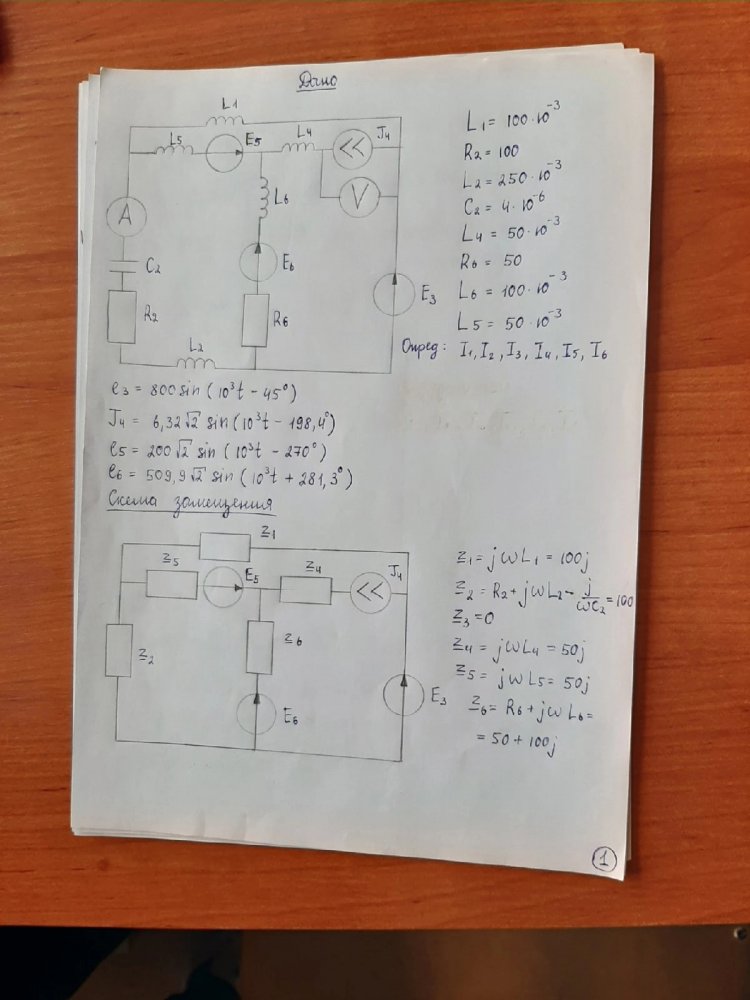 Дано
L1
L5
E5
L4
J4
A
V
L6
C2
E6
E3
R2
R6
L2
L1 = 100·10⁻³
R2 = 100
L2 = 250·10⁻³
C2 = 4·10⁻⁶
L4 = 50·10⁻³
R6 = 50
L6 = 100·10⁻³
L5 = 50·10⁻³
Опред: I1, I2, I3, I4, I5, I6
e3 = 800 sin (10³t - 45°)
J4 = 6,32√2 sin (10³t - 198,4°)
e5 = 200√2 sin (10³t - 270°)
e6 = 509,9√2 sin (10³t + 281,3°)
Схема замещения
z1
z5
E5
z4
J4
z2
z6
E6
E3
z1 = jωL1 = 100j
z2 = R2 + jωL2 - j/ωC2 = 100
z3 = 0
z4 = jωL4 = 50j
z5 = jωL5 = 50j
z6 = R6 + jωL6 =
= 50 + 100j
1